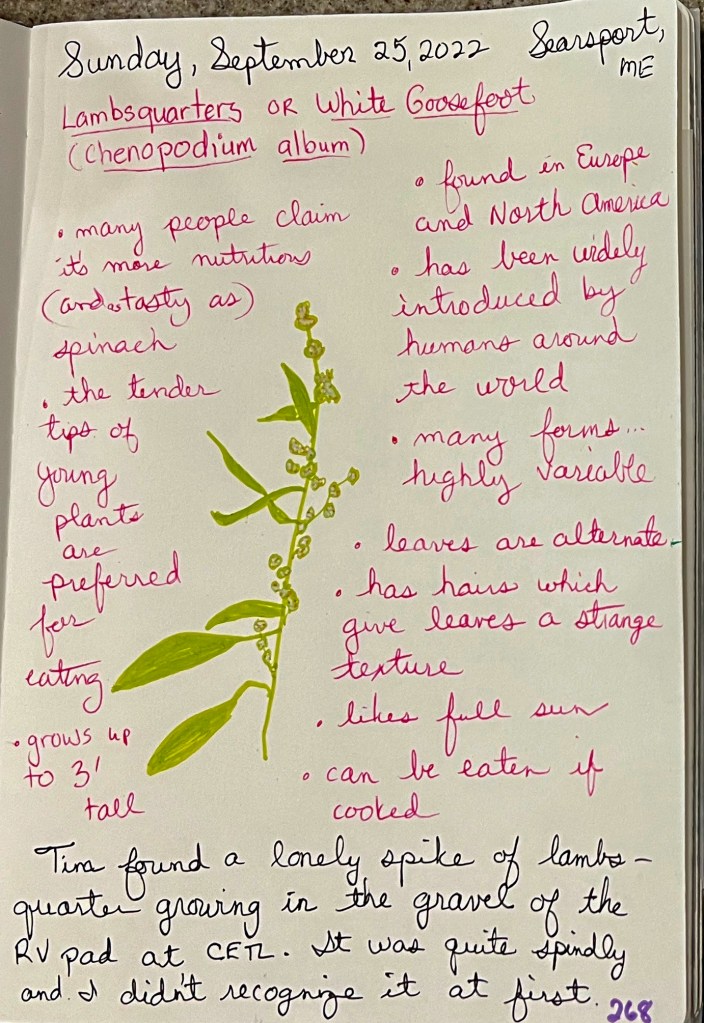 Sunday, September 25, 2022 Searsport,
ME
Lambsquarters OR White Goosefoot
(Chenopodium album)
• many people claim
it's more nutritious
(and as tasty as)
spinach
• the tender
tips of
young
plants
are
preferred
for
eating
• grows up
to 3'
tall
• found in Europe
and North America
• has been widely
introduced by
humans around
the world
• many forms...
highly variable
• leaves are alternate
• has hairs which
give leaves a strange
texture
• likes full sun
• can be eaten if
cooked
Tina found a lonely spike of lambs-
quarter growing in the gravel of the
RV pad at CETL. It was quite spindly
and I didn't recognize it at first.
268